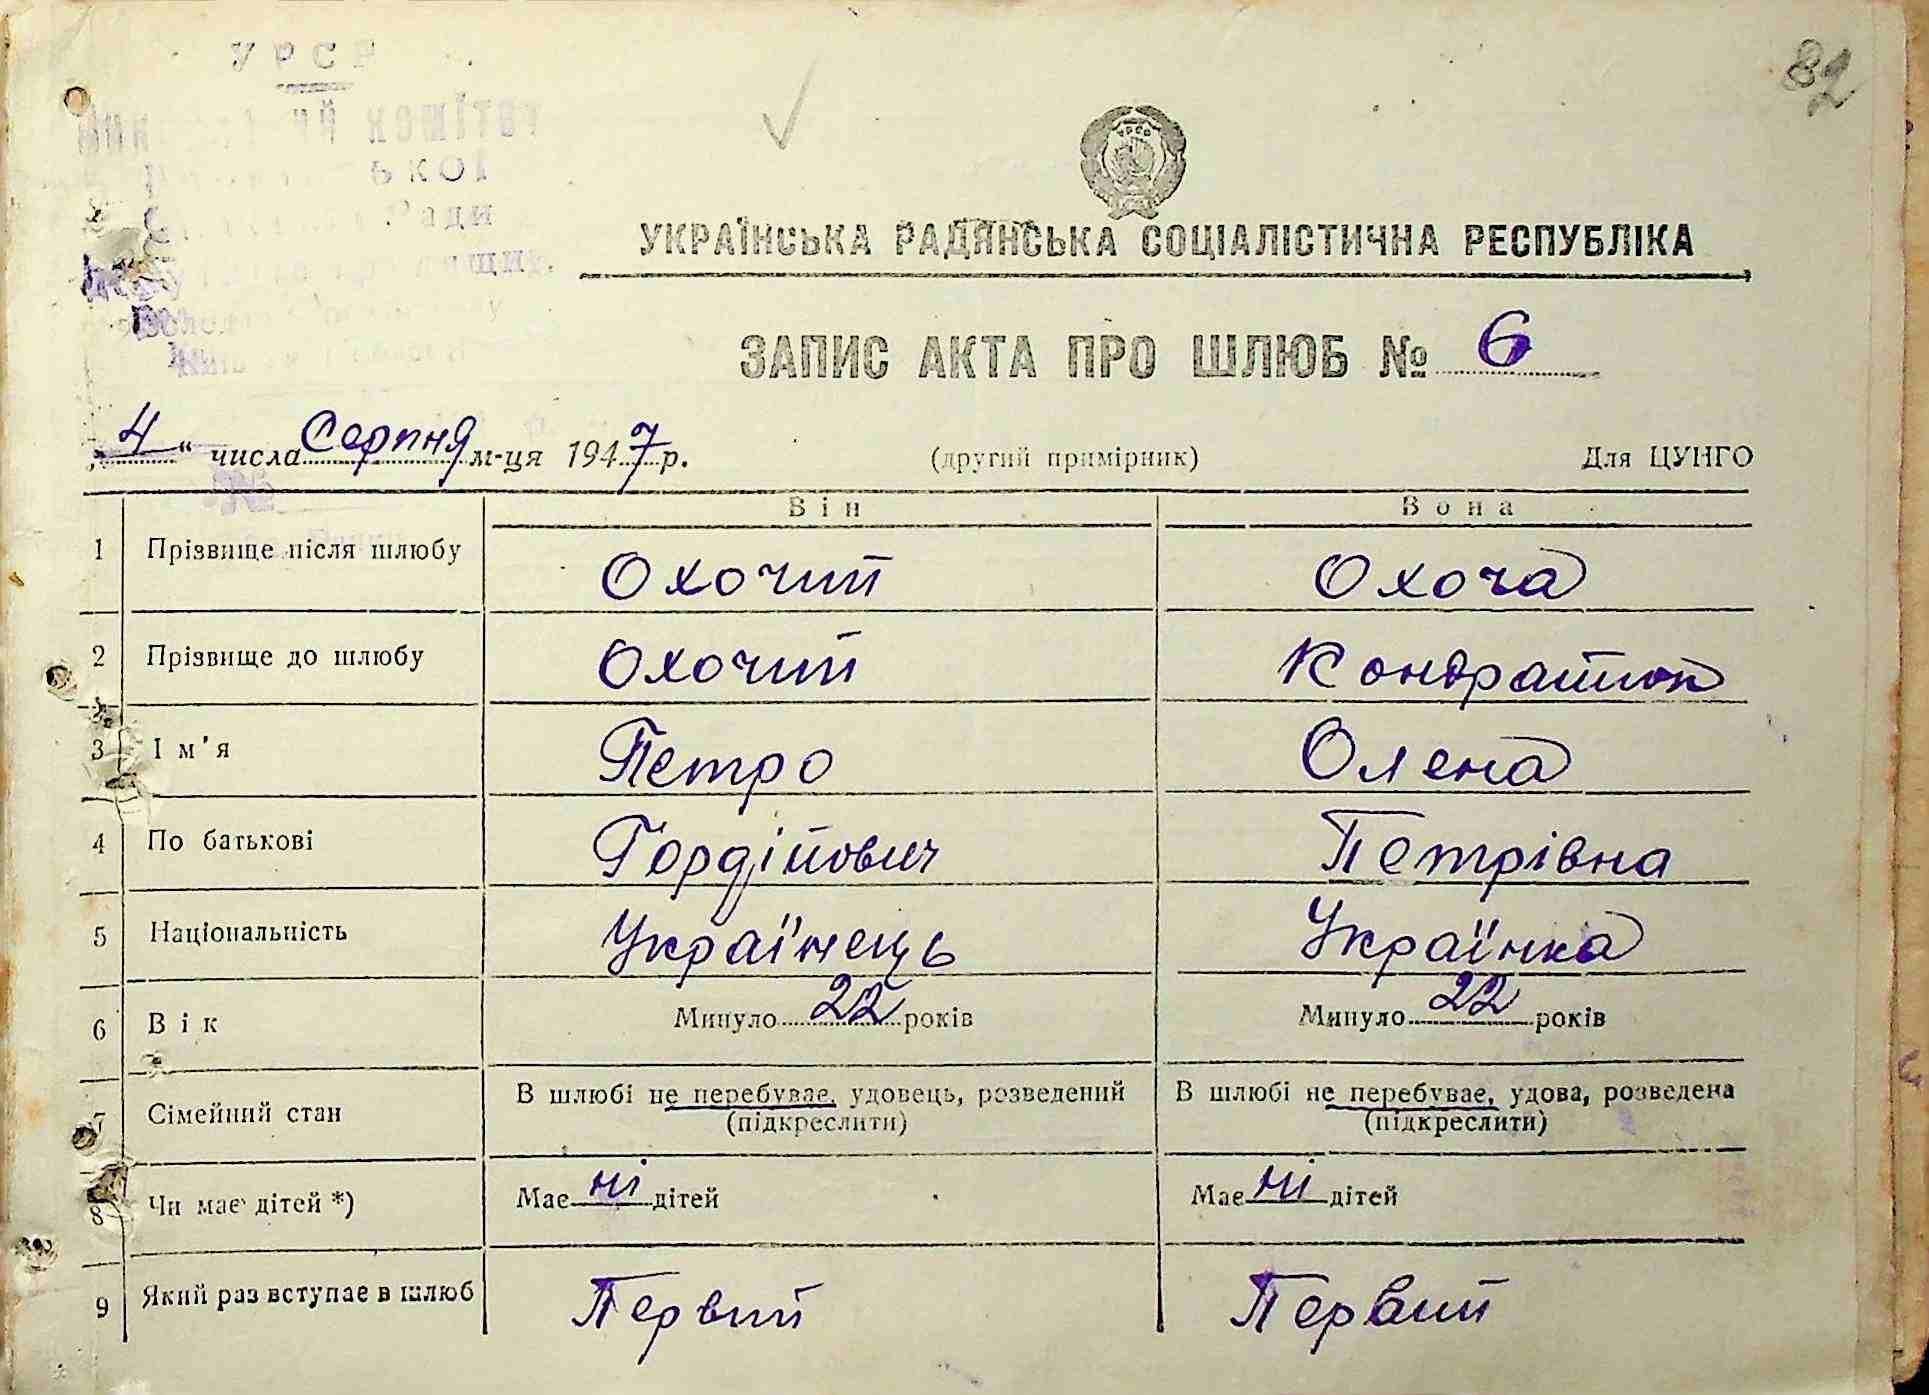 УРСР
82
УКРАЇНСЬКА РАДЯНСЬКА СОЦІАЛІСТИЧНА РЕСПУБЛІКА
ЗАПИС АКТА ПРО ШЛЮБ № 6
„4“ числа Серпня м-ця 1947 р. (другий примірник) Для ЦУНГО
Він Вона
1 Прізвище після шлюбу Охочий Охоча
2 Прізвище до шлюбу Охочий Кондратюк
3 Ім'я Петро Олена
4 По батькові Гордійович Петрівна
5 Національність Українець Українка
6 Вік Минуло 22 років Минуло 22 років
7 Сімейний стан В шлюбі не перебуває, удовець, розведений В шлюбі не перебуває, удова, розведена
(підкреслити) (підкреслити)
8 Чи має дітей *) Має ні дітей Має ні дітей
9 Який раз вступає в шлюб Первий Первий